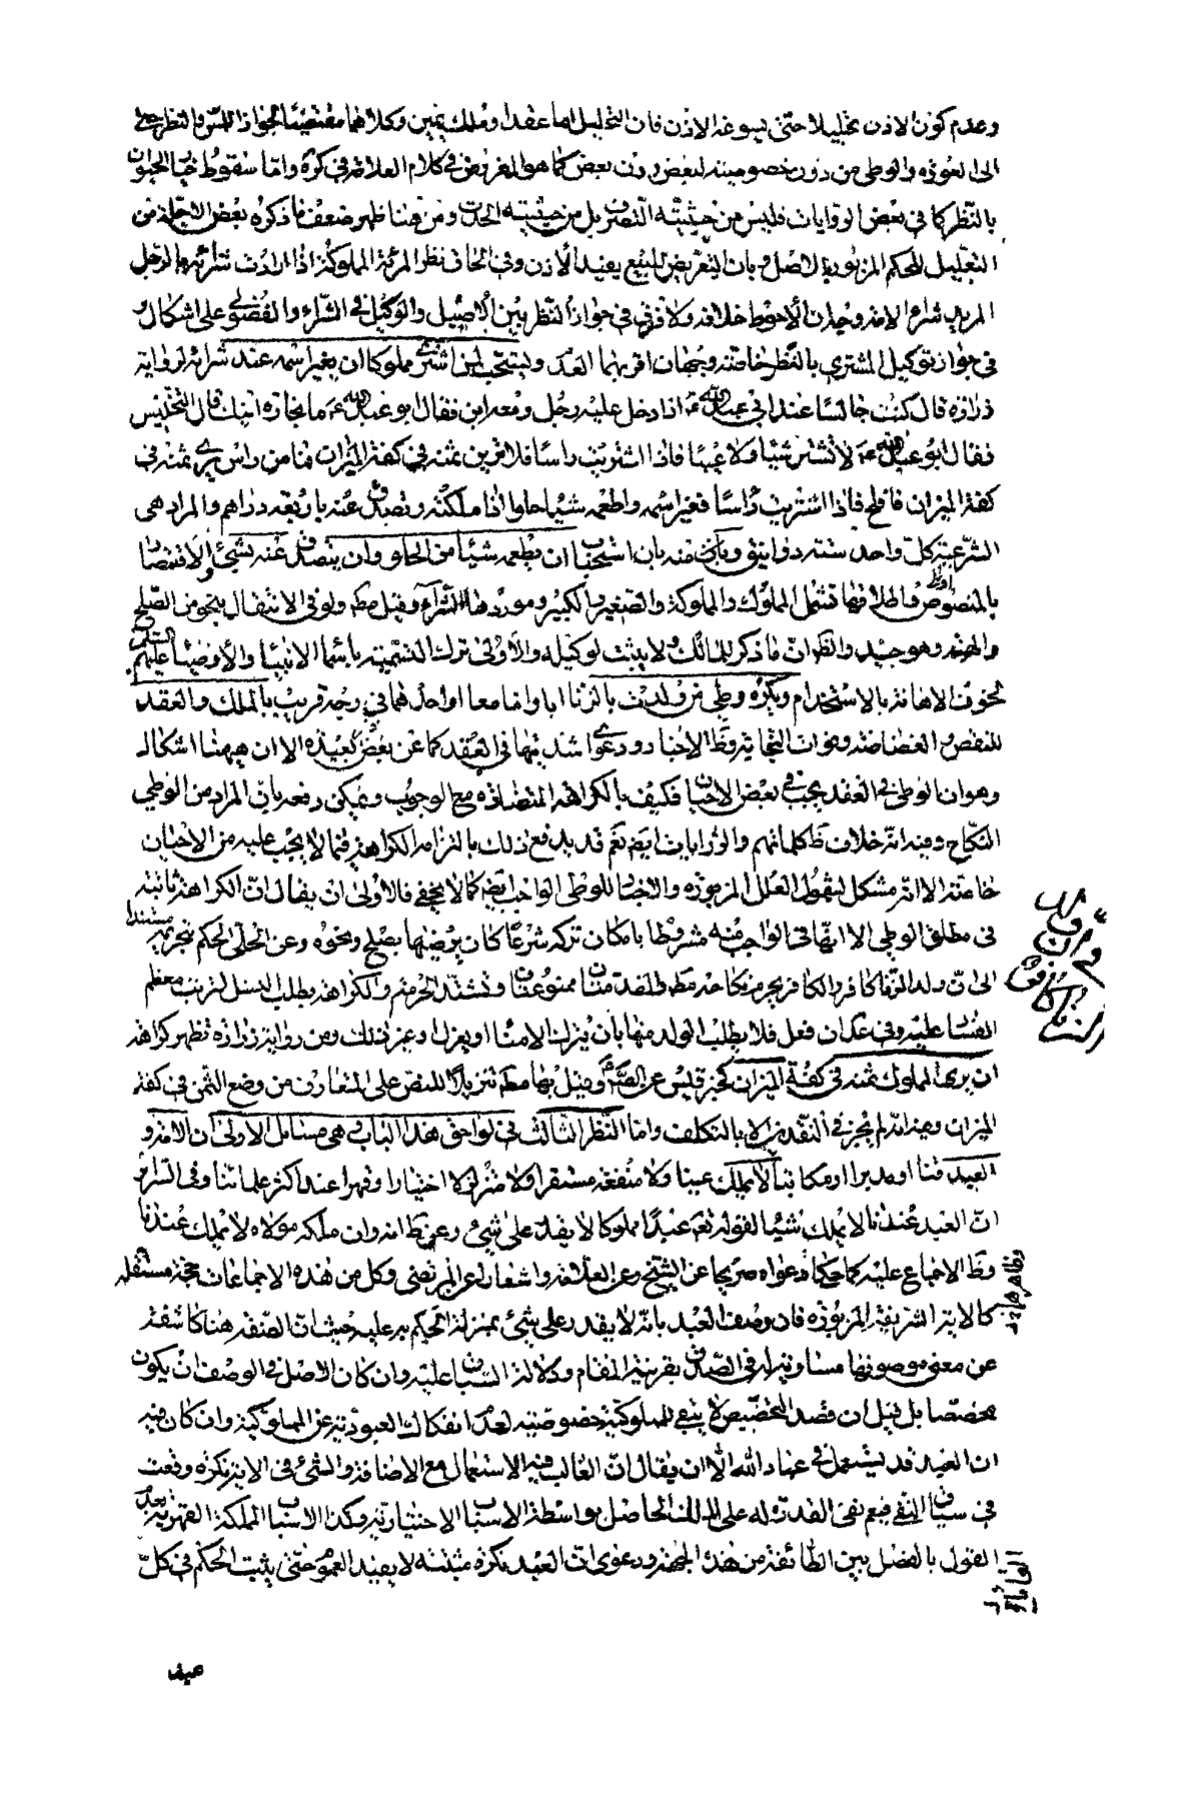 وعدم كون الاذن تحليلا حتى يسوغه الاذن فان التحليل اما عقدا وملك يمين وكلاهما مقتضيا لجواز اللمس والنظر حتى
الى العورة والوطى من دون خصوصية لبعض دون بعض كما هو المفروض في كلام العلامة في كره واما سقوط خيار الحيوان
بالنظر كما في بعض الروايات فليس من حيثية التصرف بل من حيثية الحدث ومن هنا ظهر ضعف ما ذكره بعض الاجلة من
التعليل للحكم المزبور بالاصل وبان التعريض للبيع يفيد الاذن وفي الحاق نظر المرئة المملوكة اذا ارادت شرائه بالرجل
المريد شراء الامة وجهان الاحوط خلافه ولا فرق في جواز النظر بين الاصيل والوكيل في الشراء والفضولى على اشكال و
في جواز توكيل المشترى بالنظر خاصة وجهان اقربهما العدم ويستحب لمن اشترى مملوكا ان يغير اسمه عند شرائه لرواية
زرارة قال كنت جالسا عند ابى عبد الله ع اذا دخل عليه رجل ومعه ابن فقال ابو عبد الله ع ما تجارة ابنك قال النخس
فقال ابو عبد الله ع لا تشتر شينا ولا عيبا فاذا اشتريت راسا فلا ترين ثمنه في كفة الميزان فما من راس يرى ثمنه في
كفة الميزان فافلح فاذا اشتريت راسا فغير اسمه واطعمه شيئا حلوا اذا ملكته وتصدق عنه باربعة دراهم والمراد هى
الشرعية كل واحد ستة دوانيق ويأتى منه بان استحباب ان يطعمه شيئا من الحلو وان يتصدق عنه بشئ والاقتصار
بالمنصوص اولى واطلاقها تشمل المملوك والمملوكة والصغير والكبير وموردها الشراء وقيل مط ولو في الانتقال بنحو من الصلح
والهبة وهو جيد والظ ان ما ذكر للمالك ولا يثبت لوكيله والاولى ترك التسمية باسماء الانبياء والاوصياء عليهم السلم
لخوف الاهانة بالاستخدام ويكره وطى من ولدت بالزنا ابا واما معا او احدهما في وجه قريب بالملك والعقد
للنقص والغضاضة وهو ان النجابة وظ الاخبار ودعوى اشديتها في العقد كما عن بعض بعيدة الا ان ههنا اشكالا
وهو ان الوطى في العقد يجب في بعض الاحيان فكيف بالكراهة المتضادة مع الوجوب ويمكن دفعه بان المراد من الوطى
النكاح وفيه انه خلاف ظ كلماتهم والروايات ايضا نعم قد يدفع ذلك بالتزام الكراهة فيما لا يجب عليه من الاحيان
خاصة الا انه مشكل لشمول العلل المزبورة والاخبار للوطى الواجب ايضا كما لا يخفى فالاولى ان يقال ان الكراهة ثابتة
في مطلق الوطى الا انها في الواجب منه مشروطا بامكان تركه شرعا كان يرضيها بصلح ونحوه وعن الحلى الحكم بتحريمه مستندا
الى ان ولد الزنا كافر والكافر يحرم نكاحه مط والمقدمتان ممنوعتان وتشتد الحرمة والكراهة بطلب النسل لترتب معظم
الفساد عليه وفي عد ان فعل فلا يطلب الولد منها بان ينزل الامناء او يعزل وغير ذلك ومن رواية زرارة تظهر كراهة
ان يرى المملوك ثمنه في كفة الميزان كخبر قليس عن الصادق ع وقيل بها مط تنزيلا للنص على المتعارف من وضع الثمن في كفة
الميزان وفيه انه لم يجز في النقدين الا بالتكلف واما النظر الثالث في لواحق هذا الباب فهى مسائل الاولى ان الامة و
العبد قنا او مدبرا او مكاتبا لا يملك عينا ولا منفعة مستقرا ولا متزلزلا اختيارا وقهرا عند اكثر علمائنا وفي السرائر
ان العبد عندنا لا يملك شيئا لقوله تعم عبدا مملوكا لا يقدر على شئ وعن ط انه وان ملكه مولاه لا يملك عندنا
وظ الاجماع عليه كما حكا دعواه صريحا عن الشيخ وعن العلامة واشعارا عن المرتضى وكل من هذه الاجماعات حجة مستقلة
كالاية الشريفة المزبورة فان وصف العبد بانه لا يقدر على شئ بمنزلة الحكم به عليه حيث ان الصفة هنا كاشفة
عن معنى موصوفها مساوية له في الصدق بقرينة المقام ودلالة السياق عليه وان كان الاصل في الوصف ان يكون
مخصصا بل قيل ان قصد التخصيص لا يبقى للمملوكية خصوصية لعدم انفكاك العبودية عن المملوكية وان كان فيه
ان العبد قد يستعمل في عباد الله الا ان يقال ان الغالب فيه الاستعمال مع الاضافة والشئ في الاية نكرة وقعت
في سياق النفى فيعم نفى القدرة له على الملك الحاصل بواسطة الاسباب الاختيارية وكذا الاسباب المملكة القهرية بعدم
القول بالفصل بين الطائفة من هذه الجهة ودعوى ان العبد نكرة مثبتة لا يفيد العموم حتى يثبت الحكم في كل
عبد